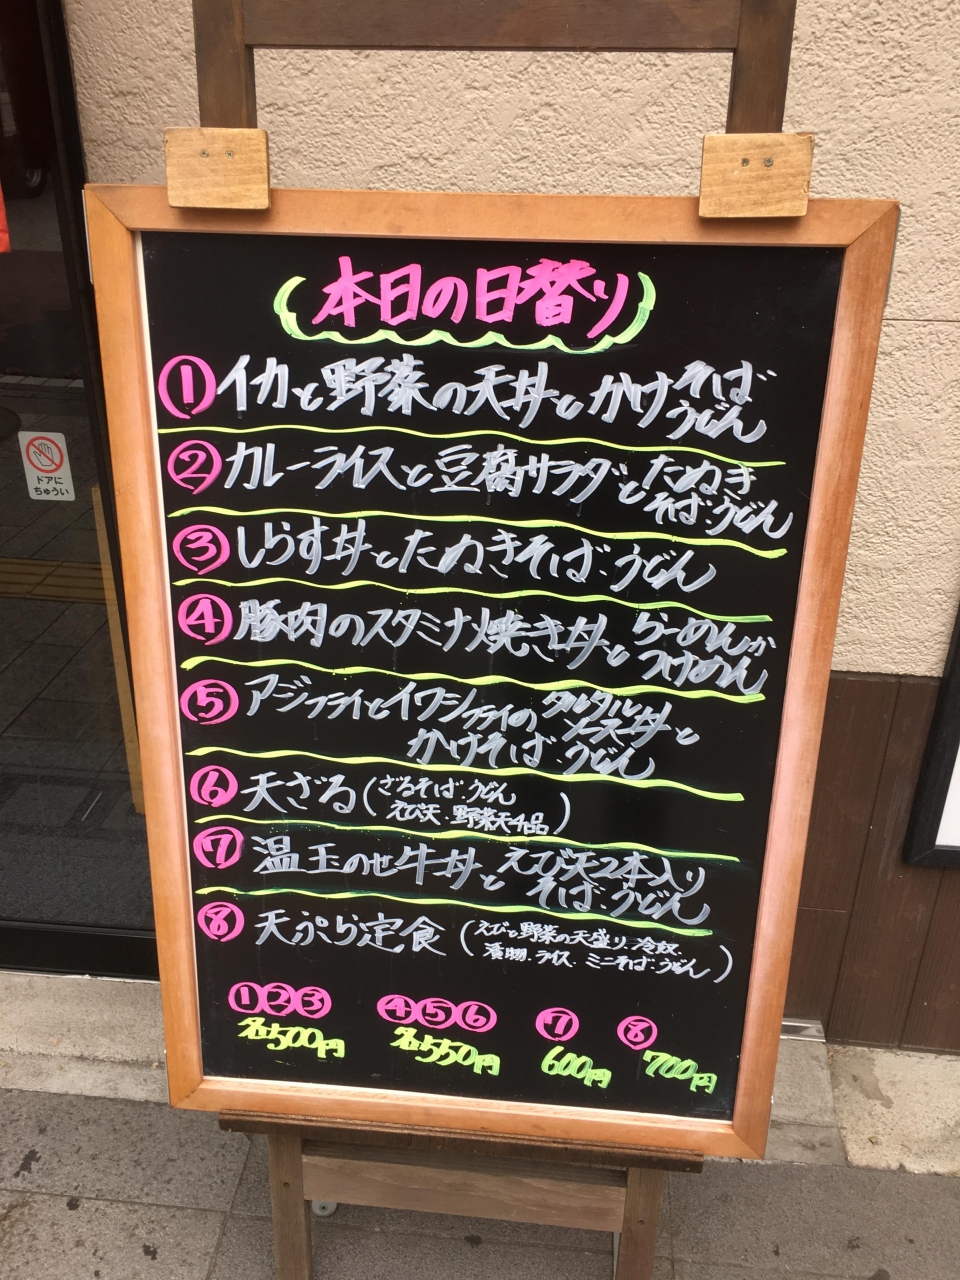 本日の日替り
① イカと野菜の天丼とかけそばうどん
② カレーライスと豆腐サラダとたぬきそば・うどん
③ しらす丼とたぬきそば・うどん
④ 豚肉のスタミナ焼き丼とらーめんかつけめん
⑤ アジフライとイワシフライのタルタルソース丼と
かけそば・うどん
⑥ 天ざる(ざるそば・うどん
えび天・野菜天4品)
⑦ 温玉のせ牛丼とえび天2本入り
そば・うどん
⑧ 天ぷら定食(えびと野菜の天盛り、冷奴、
漬物、ライス、ミニそば・うどん)
①②③ ④⑤⑥ ⑦ ⑧
各500円 各550円 600円 700円
ドアに
ちゅうい